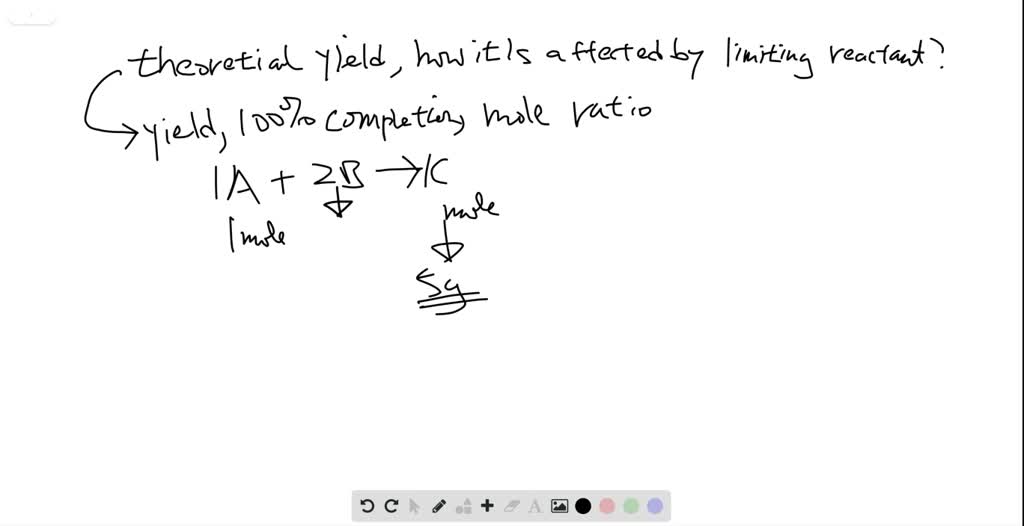 theoretial yield, how it is affected by limiting reactant?
yield, 100% completion, mole ratio
1A + 2B → 1C
1 mole
mole
5g